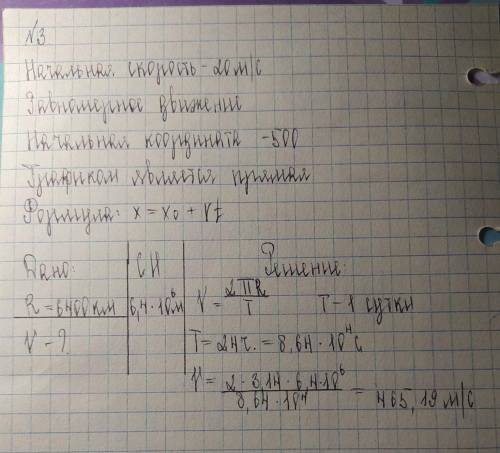 №3
Начальная скорость - 20 м/с
Равномерное движение
Начальная координата -500
Графиком является прямая
Формула: x = x₀ + Vt
Дано: СИ Решение:
R = 6400 км 6,4 · 10⁶ м V = 2ПR/T T - 1 сутки
V - ? T = 24 ч. = 8,64 · 10⁴ с
V = 2 · 3,14 · 6,4 · 10⁶ / 8,64 · 10⁴ = 465,19 м/с